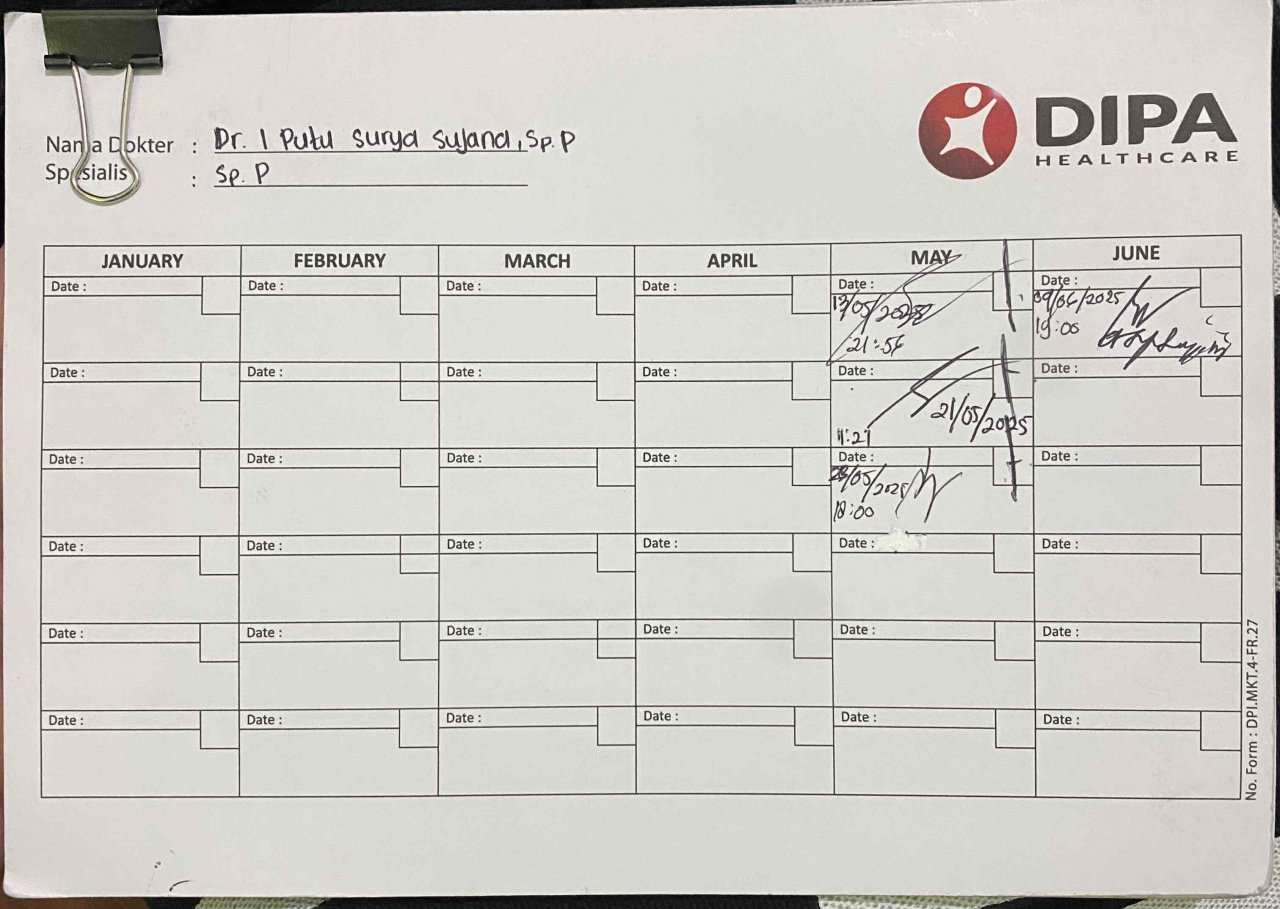 DIPA
HEALTHCARE
Nama Dokter : Dr. I Putu Surya Sujana, Sp. P
Spesialis : Sp. P
JANUARY FEBRUARY MARCH APRIL MAY JUNE
Date : Date : Date : Date : Date : Date :
13/05/2025 09/06/2025
21:56 19:00
Date : Date : Date : Date : Date : Date :
21/05/2025
11:27
Date : Date : Date : Date : Date : Date :
/05/2025
18:00
Date : Date : Date : Date : Date : Date :
Date : Date : Date : Date : Date : Date :
Date : Date : Date : Date : Date : Date :
No. Form : DPI.MKT.4-FR.27